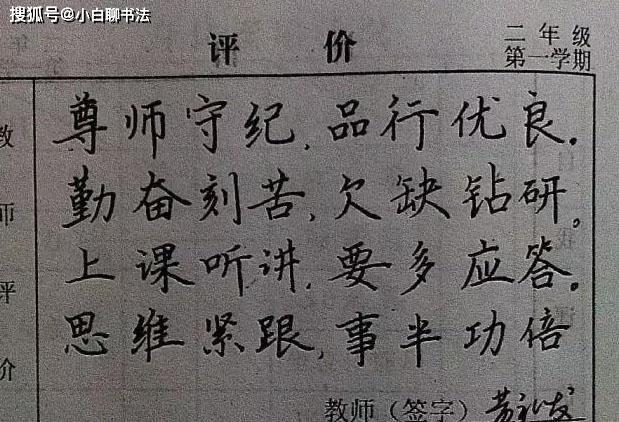 搜狐号@小白聊书法
评 价
二年级
第一学期
尊师守纪,品行优良.
勤奋刻苦,欠缺钻研。
上课听讲,要多应答。
思维紧跟,事半功倍
教师评价
教师（签字）